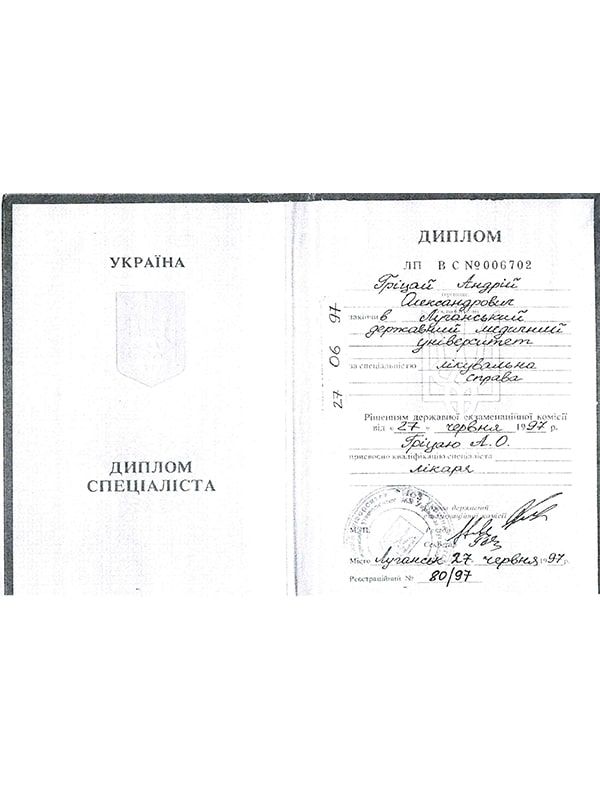 УКРАЇНА
ДИПЛОМ
СПЕЦІАЛІСТА
27 06 97
ДИПЛОМ
ЛП ВС №006702
Гріцай Андрій
Олександрович
закінчив Луганський
державний медичний
університет
за спеціальністю лікувальна
справа
Рішенням державної екзаменаційної комісії
від «27» червня 1997 р.
Гріцаю А.О.
присвоєно кваліфікацію спеціаліста
лікаря
Голова державної
екзаменаційної комісії
М.П. Ректор
Секретар
Місто Луганськ 27 червня 1997 р.
Реєстраційний № 80/97